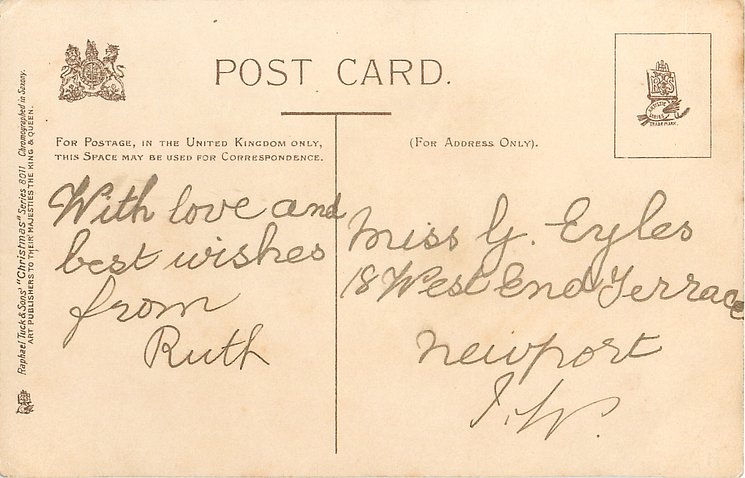 POST CARD.
FOR POSTAGE, IN THE UNITED KINGDOM ONLY,
THIS SPACE MAY BE USED FOR CORRESPONDENCE.
(FOR ADDRESS ONLY).
With love and
best wishes
from
Ruth
Miss G. Eyles
18 West End Terrace
Newport
I.W.
Raphael Tuck & Sons' "Christmas" Series 8011. Chromographed in Saxony.
ART PUBLISHERS TO THEIR MAJESTIES THE KING & QUEEN.
ARTISTIC
SERIES
TRADE MARK.